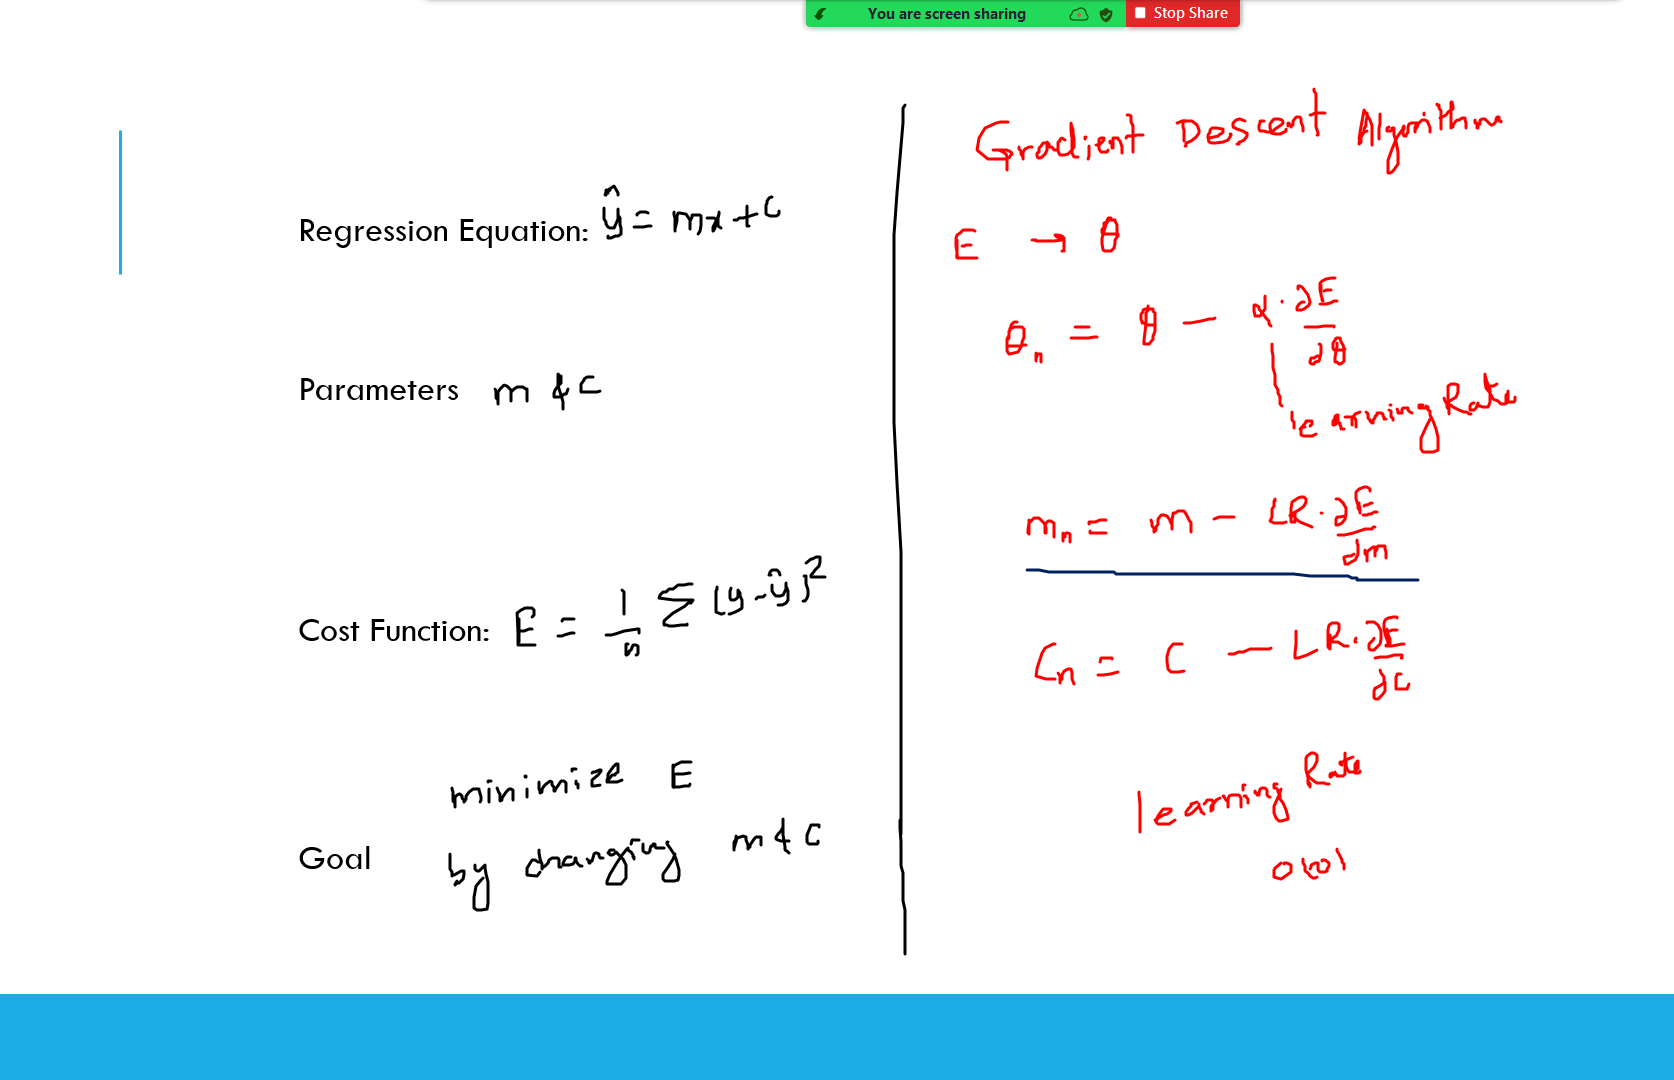 You are screen sharing
Stop Share
Regression Equation: ŷ = mx + c
Parameters m & c
Cost Function: E = 1/n Σ (y - ŷ)²
minimize E
Goal by changing m & c
Gradient Descent Algorithm
E → θ
θn = θ - α · ∂E/∂θ
learning Rate
mn = m - LR · ∂E/∂m
Cn = C - LR · ∂E/∂C
learning Rate